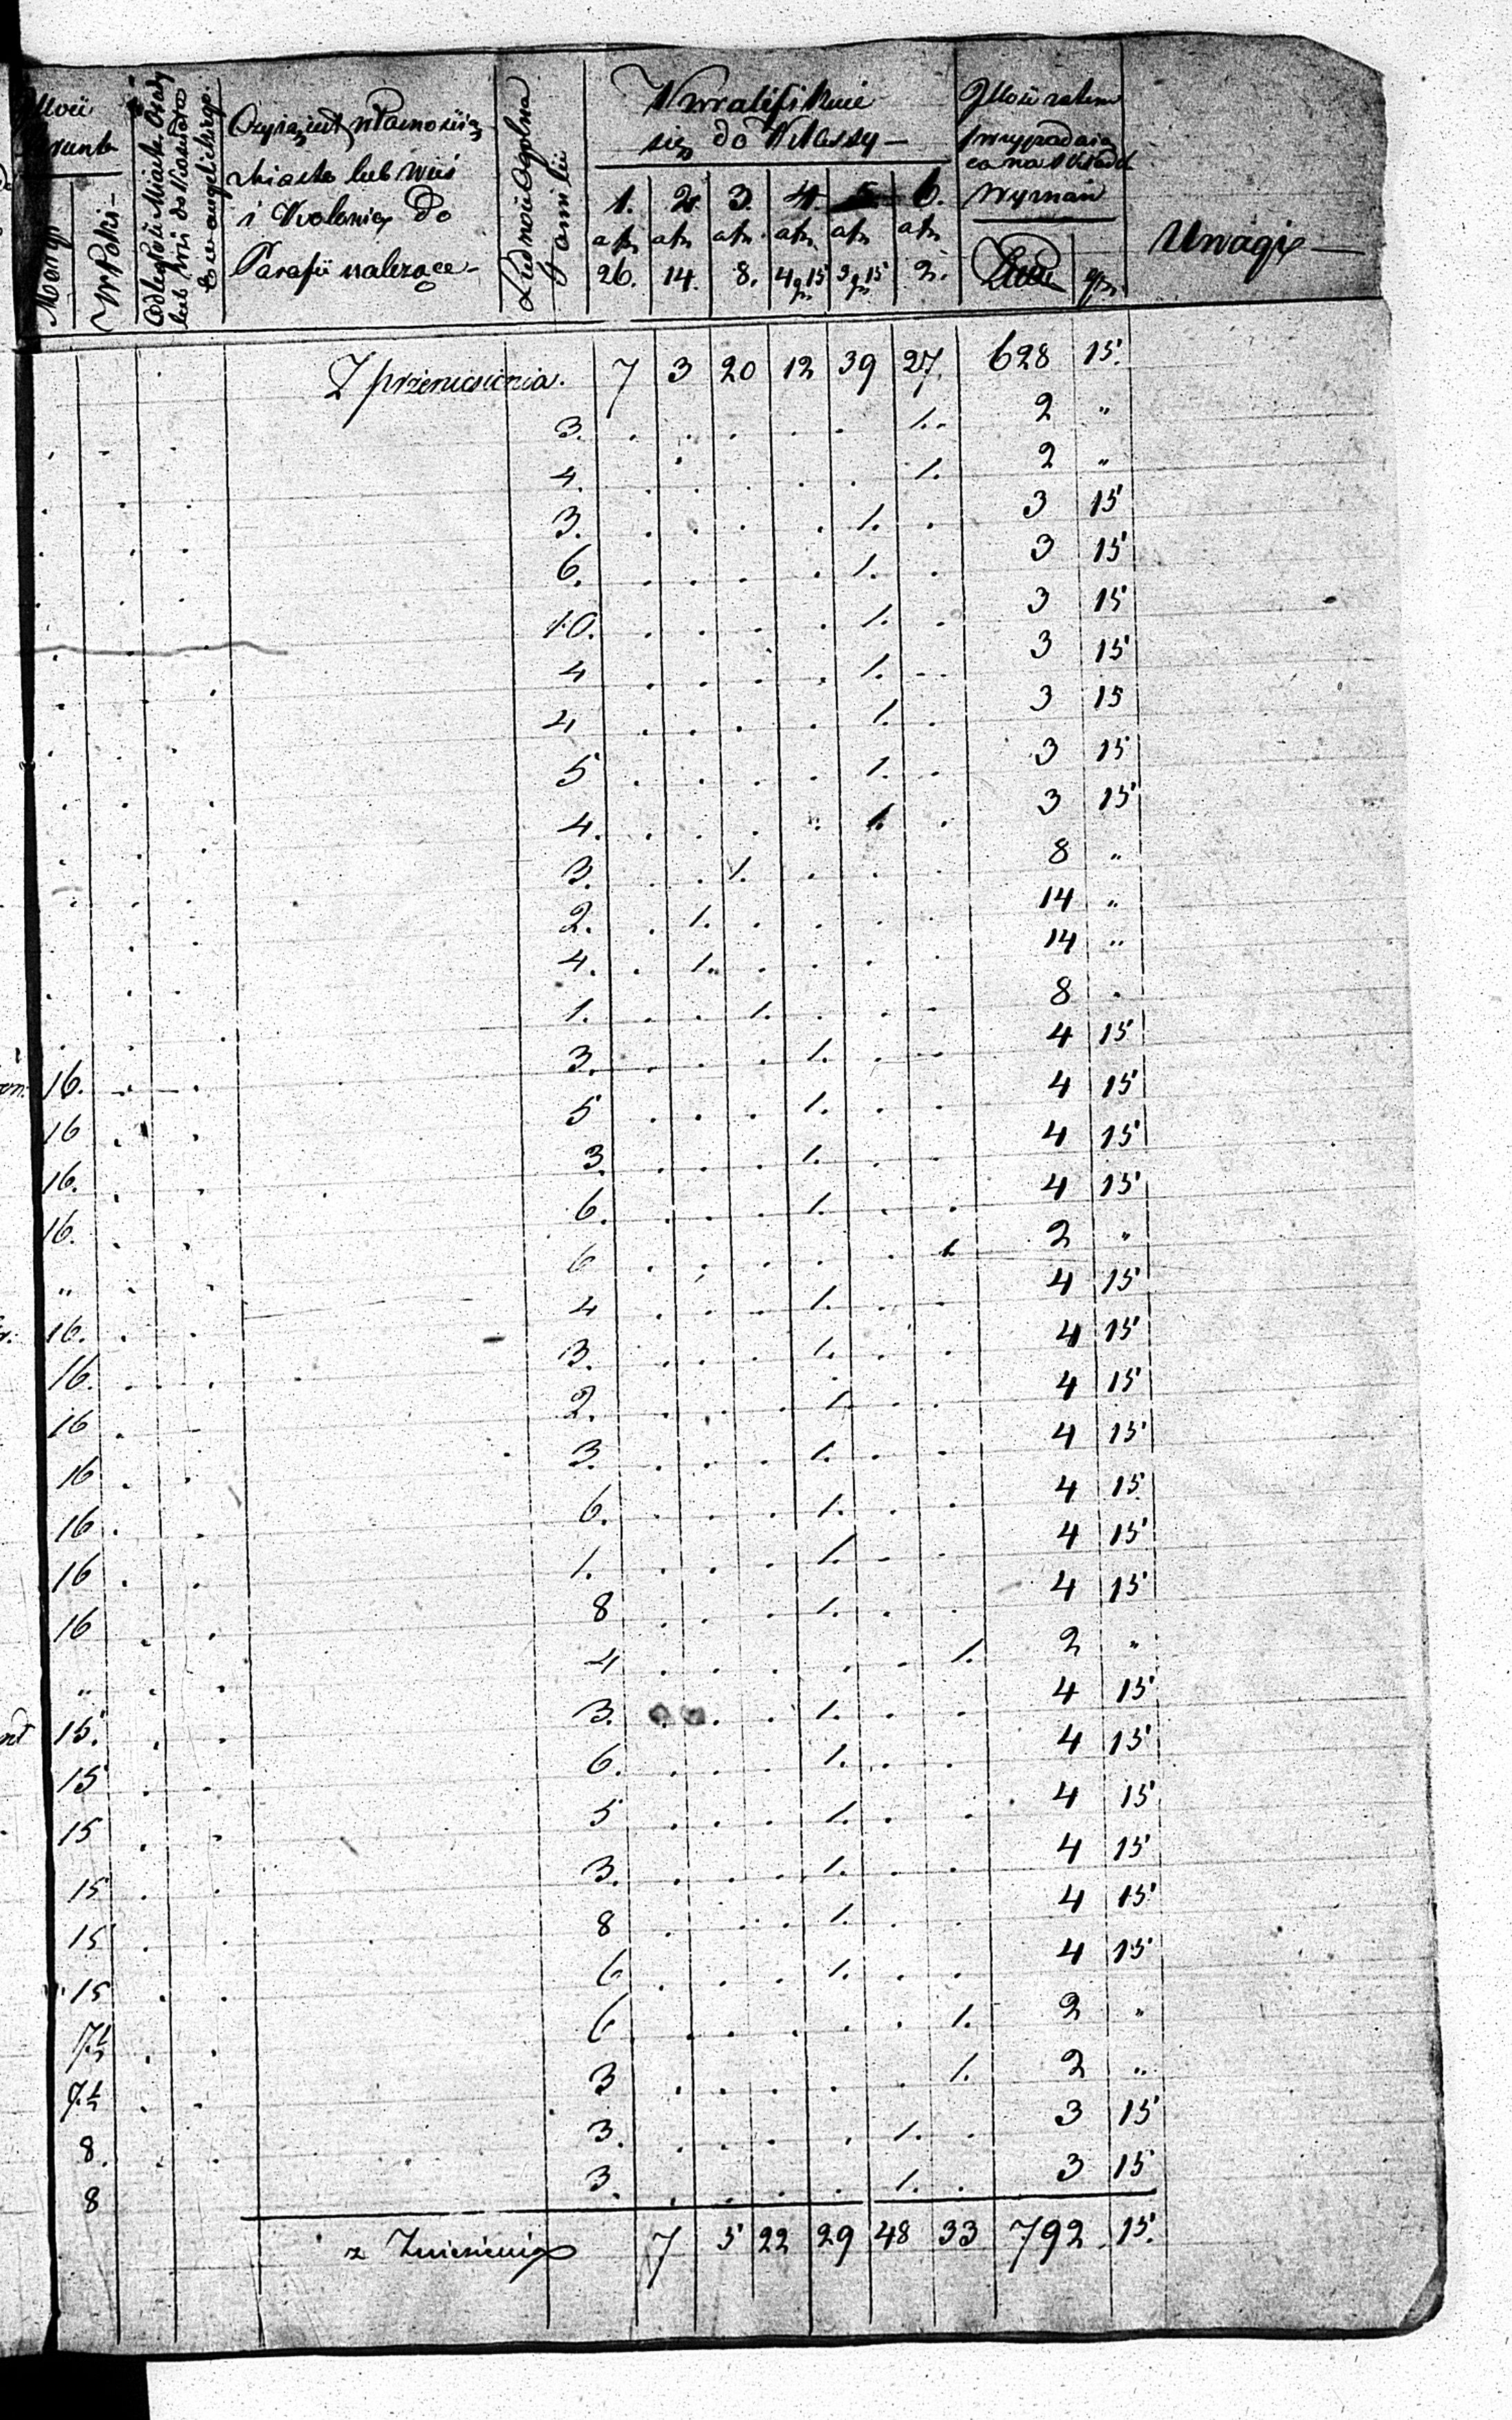 Ilość
gruntu
Morgi
Pręty
Odległość Miasta Osady
lub Wsi do Kościoła
Ewangelickiego
Czyią jest własnością
Miasto lub Wieś
i Kolonię do
Parafii należące -
Ludność Ogólna
Familii
Kwalifikuie
się do Klassy -
1. 2. 3. 4. 5. 6.
a fn a fn a fn a fn a fn a fn
26. 14. 8. 4 gr 15 3 gr 15 2.
Ilość zatem
przypadaią
ca na
Wymiar
gr.
Uwagi
Z przeniesienia. 7 3 20 12 39 27. 628 15.
3. 1. 2 "
4. 1. 2 "
3. 1. 3 15
6. 1. 3 15
10. 1. 3 15
4 1. 3 15
4 1. 3 15
5 1. 3 15
4. 1. 3 15
3. 1. 8 "
2. 1. 14 "
4. 1. 14 "
1. 1. 8 "
16. 3. 1. 4 15
16 5 1. 4 15
16. 3. 1. 4 15
16. 6. 1. 4 15
" 6 1. 2 "
16. 4 1. 4 15
16. 3. 1. 4 15
16 2. 1. 4 15
16 3. 1. 4 15
16 6. 1. 4 15
16 1. 1. 4 15
16 8 1. 4 15
" 4 1. 2 "
15. 3. 1. 4 15
15 6. 1. 4 15
15 5 1. 4 15
15 3. 1. 4 15
15 8 1. 4 15
15 6 1. 4 15
7½ 6 1. 2 "
7½ 3 1. 2 "
8. 3. 1. 3 15
8 3. 1. 3 15
z Zniesienia 7 5 22 29 48 33 792 15.